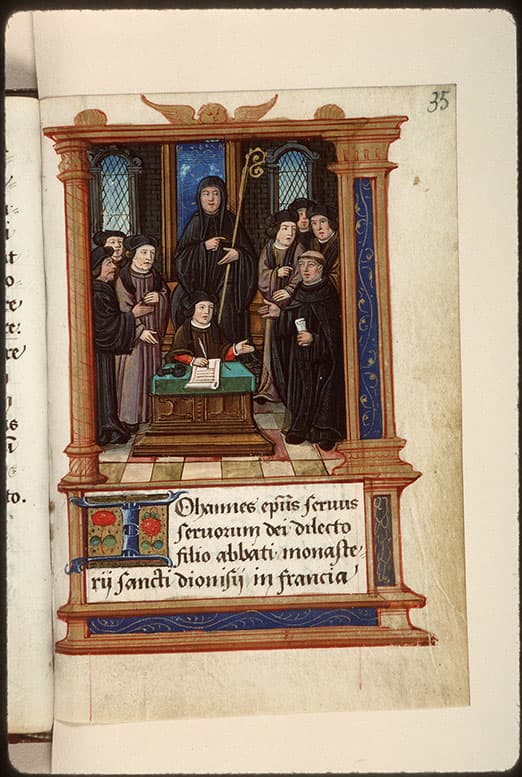 35
Iohannes ep̄us seruus
seruorum dei dilecto
filio abbati monaste-
rij sancti dionisij in francia